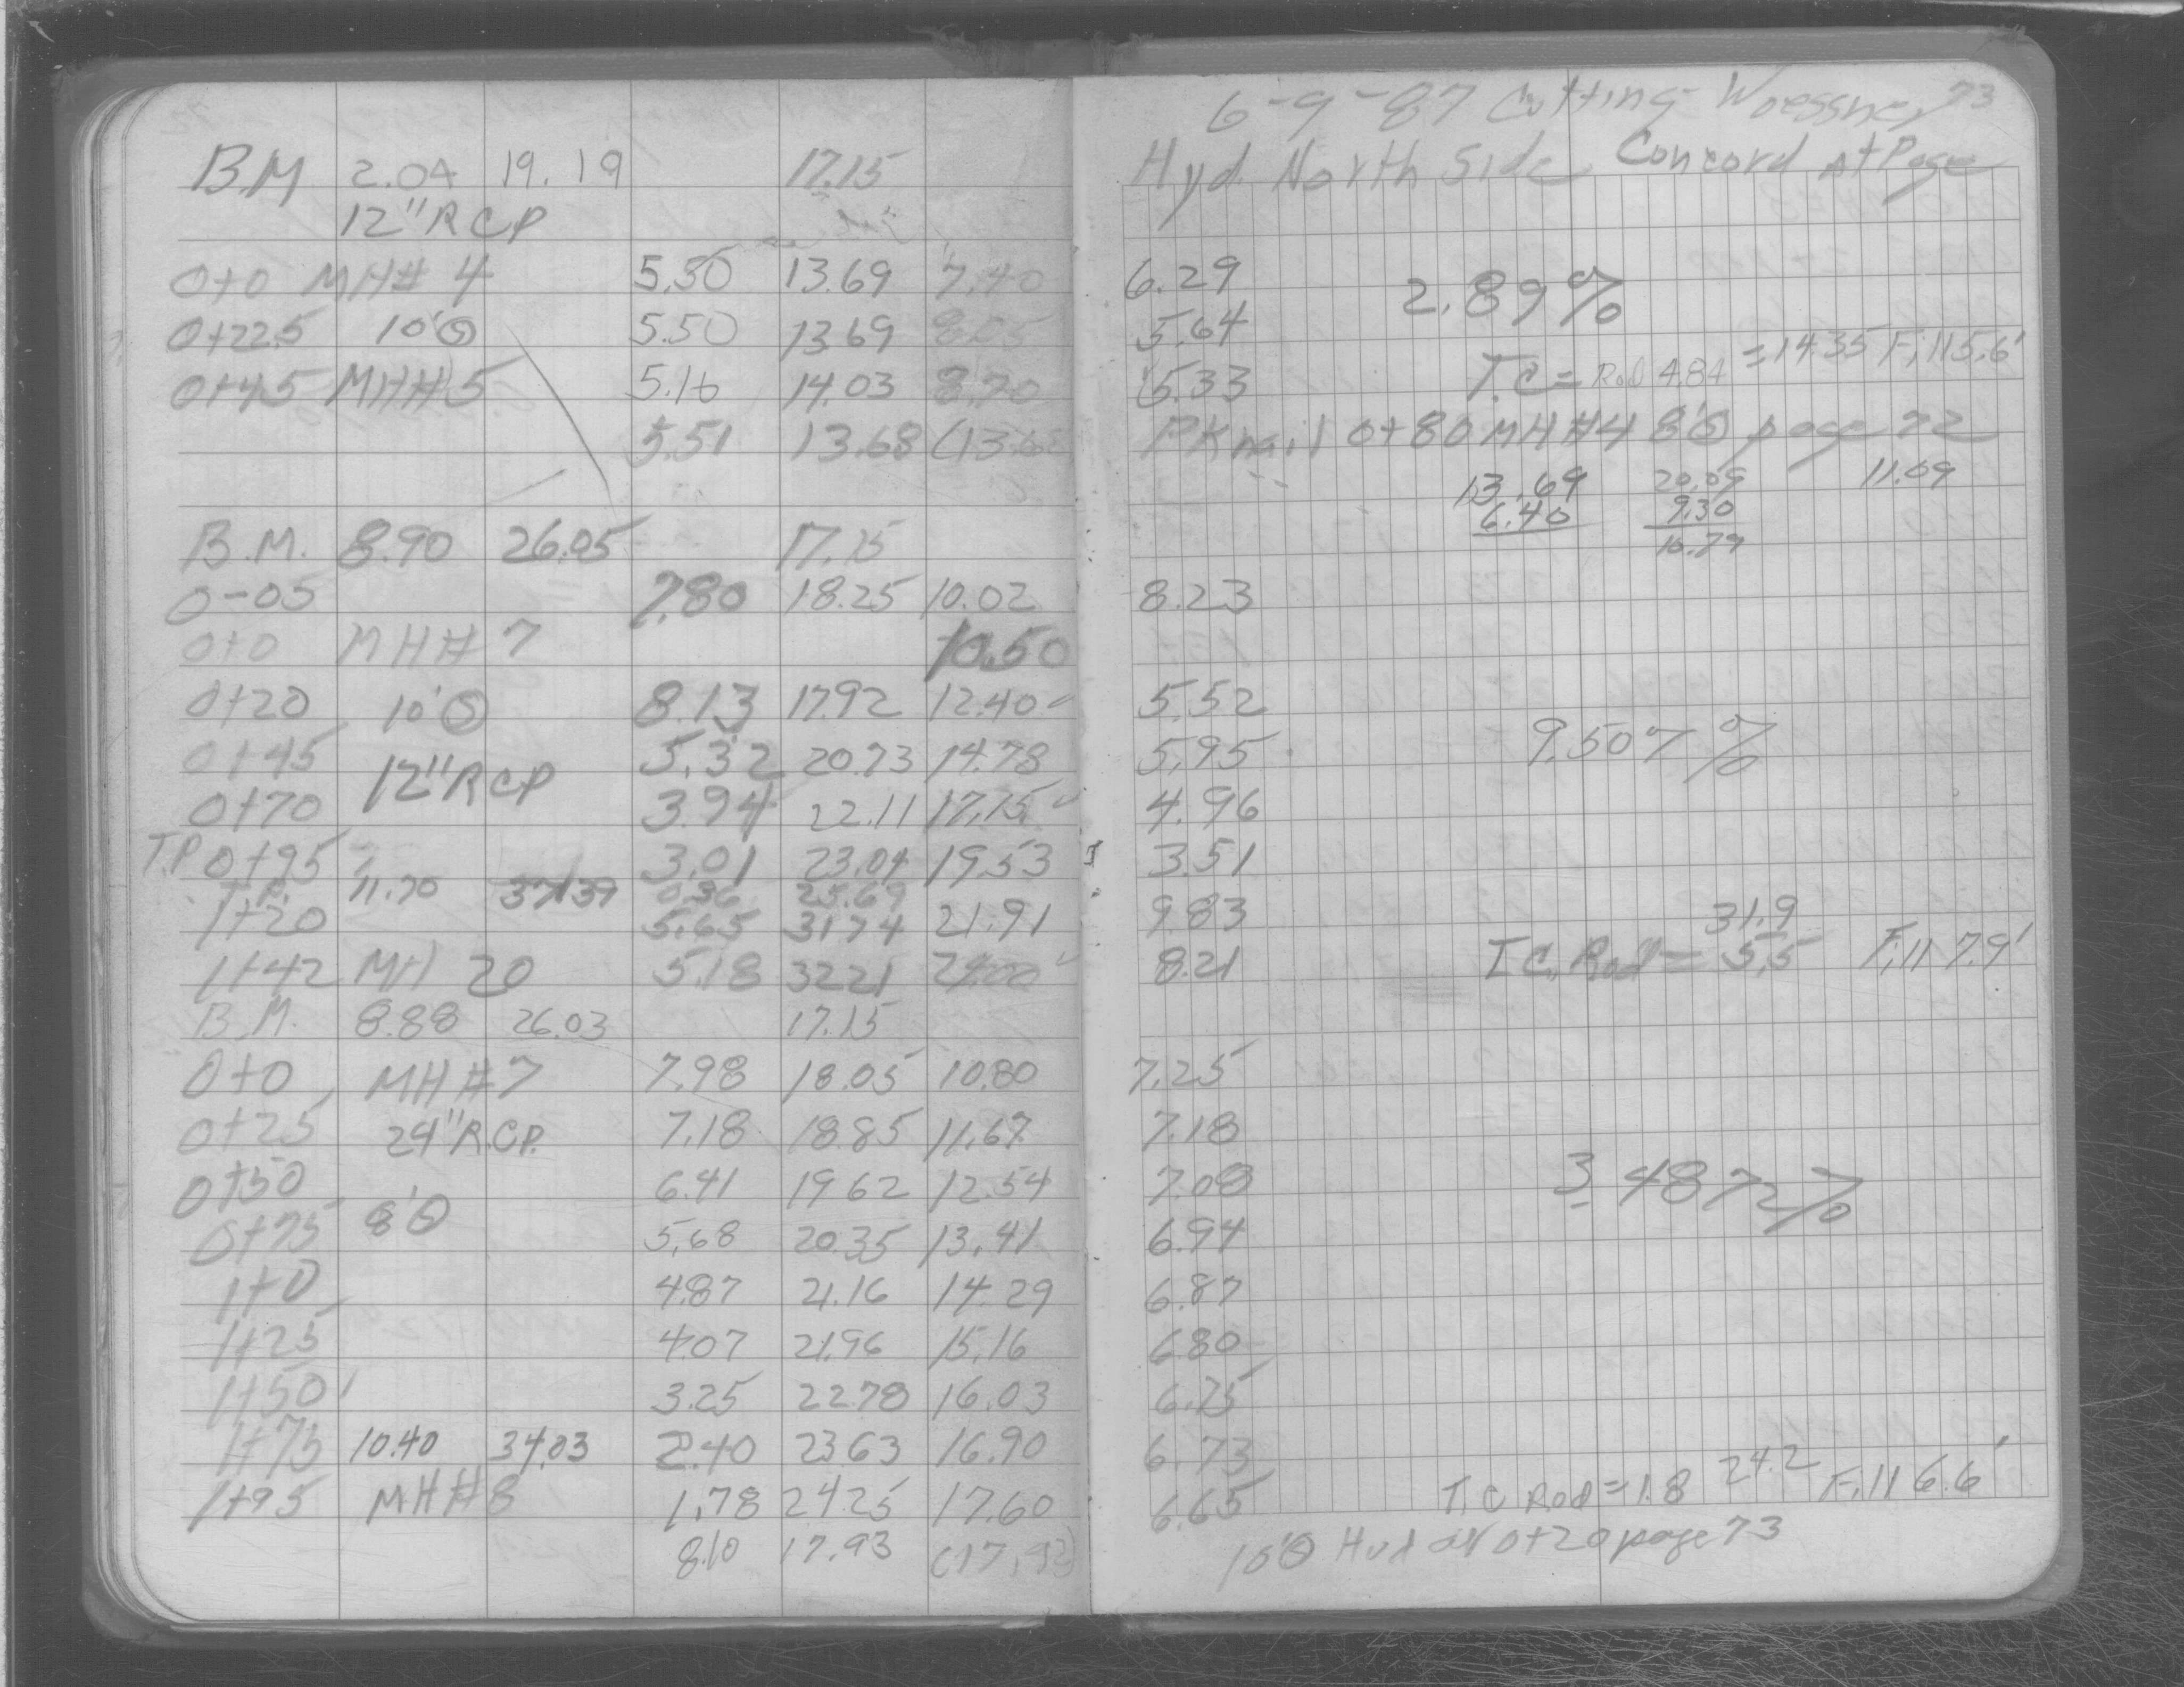 6-9-87 Cutting Woessner 73
B.M 2.04 19.19 17.15 Hyd. North Side Concord at Page
12" RCP
0+0 MH# 4 5.50 13.69 7.40 6.29 2.89%
0+22.5 10'Ⓢ 5.50 13.69 8.05 5.64
0+45 MH#5 5.16 14.03 8.70 5.33 T.C = Rod 4.84 = 14.35 Fill 5.6'
5.51 13.68 (13.68 PK nail 0+80 MH#4 8'Ⓢ page 72
13.69 20.09 11.09
6.40 9.30
10.79
B.M. 8.90 26.05 17.15
0-05 7.80 18.25 10.02 8.23
0+0 MH# 7 10.50
0+20 10'Ⓢ 8.13 17.92 12.40 5.52
0+45 5.32 20.73 14.78 5.95 9.507%
12" RCP
0+70 3.94 22.11 17.15 4.96
T.P 0+95 3.01 23.04 19.53 3.51
T.P. 11.70 37.39 0.36 25.69
1+20 5.65 31.74 21.91 9.83 31.9
1+42 MH 20 5.18 32.21 24.00 8.21 T.C. Rod = 5.5 Fill 7.9'
B.M. 8.88 26.03 17.15
0+0 MH#7 7.98 18.05 10.80 7.25
0+25 24" R.C.P. 7.18 18.85 11.67 7.18
0+50 6.41 19.62 12.54 7.08 3.4872%
0+75 8'Ⓢ 5.68 20.35 13.41 6.94
1+0 4.87 21.16 14.29 6.87
1+25 4.07 21.96 15.16 6.80
1+50 3.25 22.78 16.03 6.75
1+75 10.40 34.03 2.40 23.63 16.90 6.73
1+95 MH#8 1.78 24.25 17.60 6.65 T.C Rod = 1.8 24.2 Fill 6.6'
8.10 17.93 (17.92) 10'Ⓢ Hub at 0+20 page 73